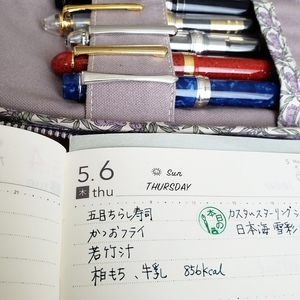 5.6
木 thu
Sun
THURSDAY
五目ちらし寿司
かつおフライ
若竹汁
柏もち、牛乳 856kcal
本日の
カスタムスターリング
日本海 雪彩